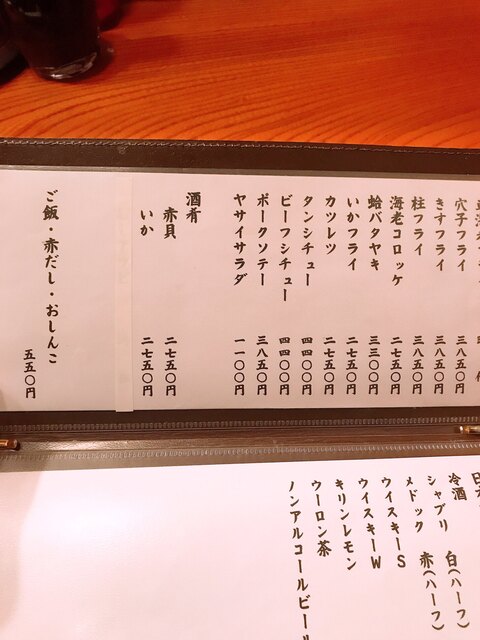 穴子フライ 三八五〇円
きすフライ 三八五〇円
柱フライ 三八五〇円
海老コロッケ 二七五〇円
蛤バタヤキ 三三〇〇円
いかフライ 二七五〇円
カツレツ 二七五〇円
タンシチュー 四四〇〇円
ビーフシチュー 四四〇〇円
ポークソテー 三八五〇円
ヤサイサラダ 一一〇〇円
酒肴
赤貝 二七五〇円
いか 二七五〇円
ご飯・赤だし・おしんこ 五五〇円
冷酒
シャブリ 白(ハーフ)
メドック 赤(ハーフ)
ウイスキーS
ウイスキーW
キリンレモン
ウーロン茶
ノンアルコールビール